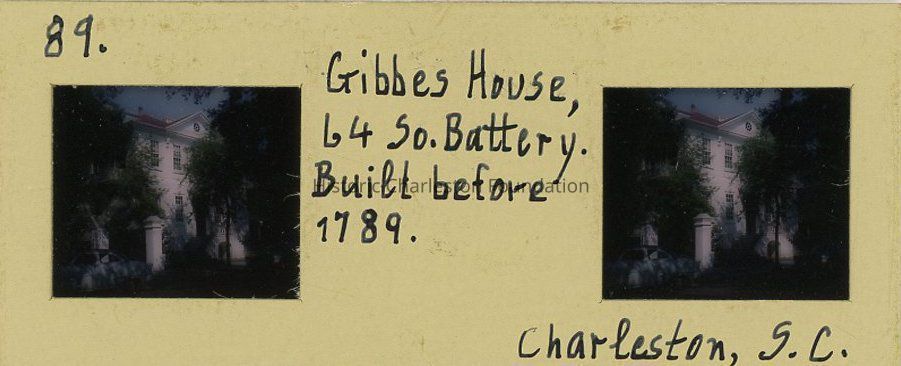 89.
Gibbes House,
64 So. Battery.
Built before
Historic Charleston Foundation
1789.
Charleston, S.C.